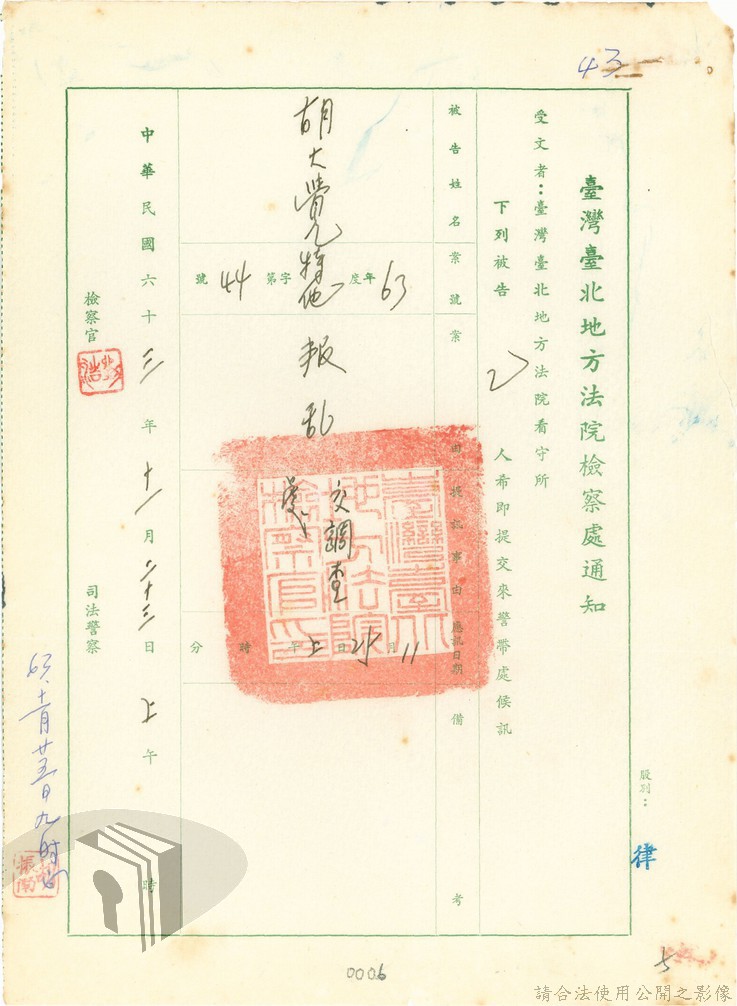 43
臺灣臺北地方法院檢察處通知
股別：
律
受文者：臺灣臺北地方法院看守所
下列被告
人希即提交來警帶處候訊
被告姓名
胡大覺
案號
63年度
字第44號
案由
叛乱
提訊事由
交調查
應訊日期
11月
日上午
時
分
備考
中華民國六十三年十一月二十三日上午
時
檢察官
司法警察
63.十一月廿五日九时
0006
5
請合法使用公開之影像